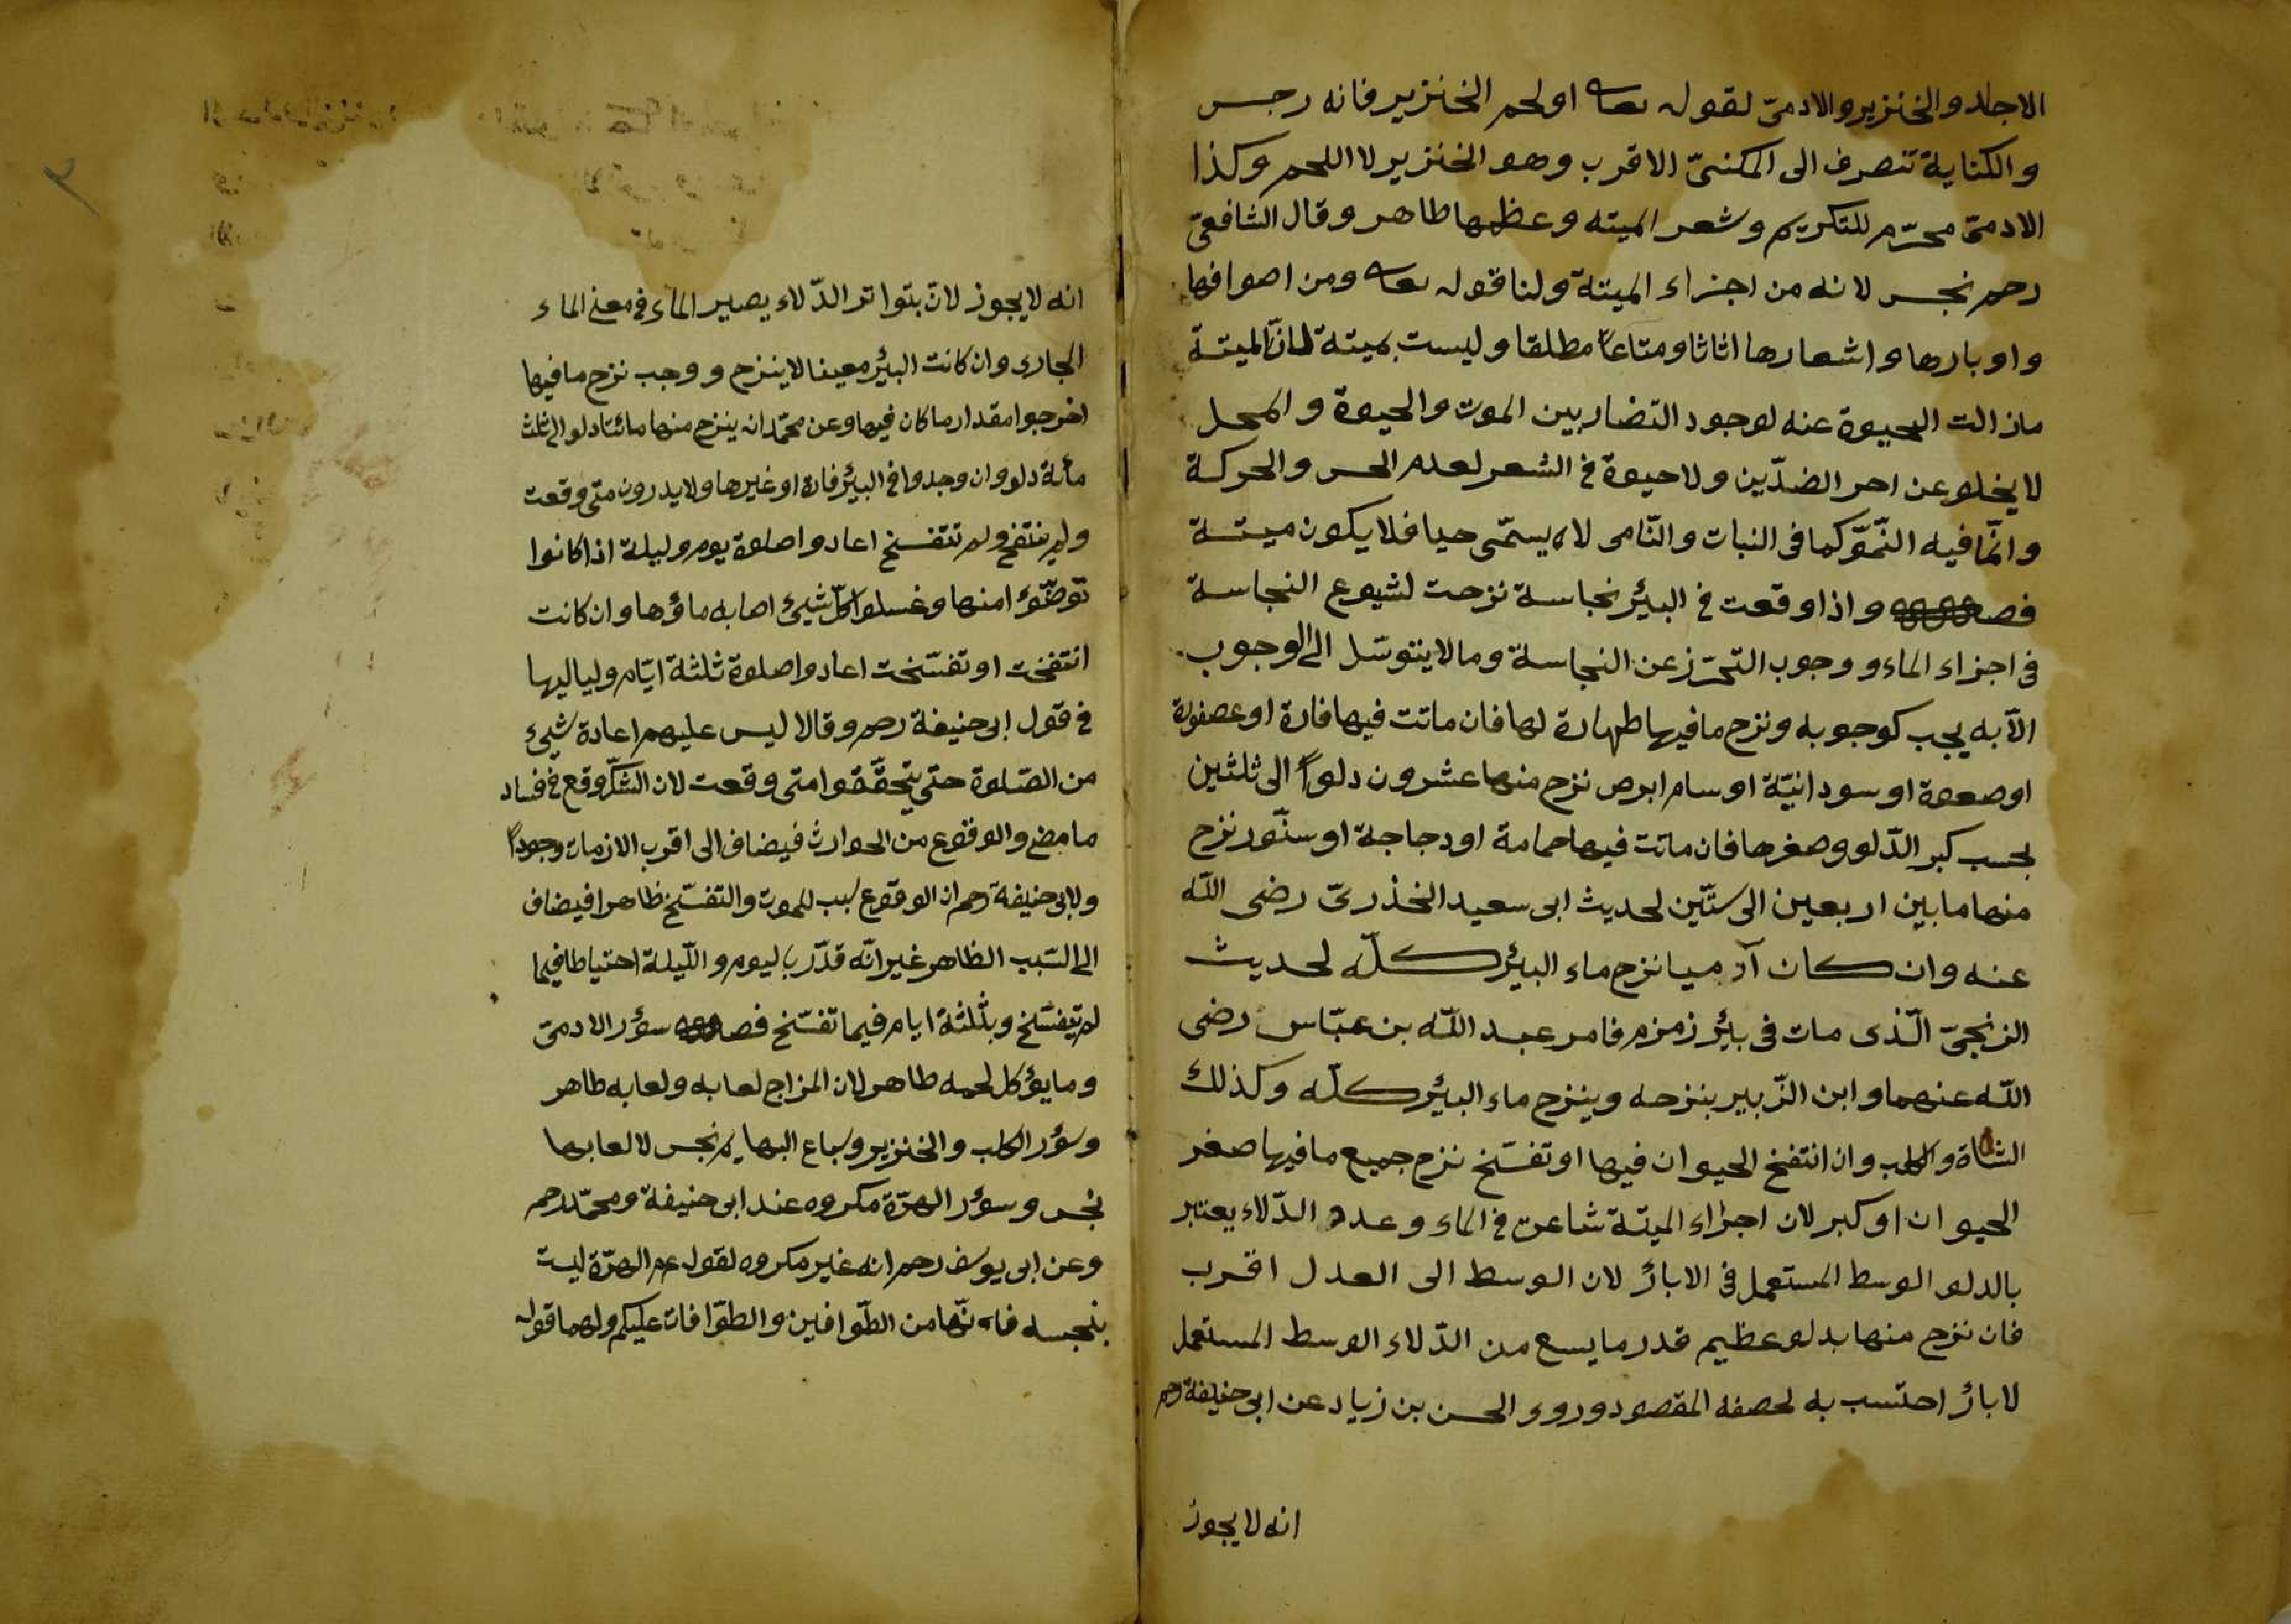 الاجلد والخنزير والادمىّ لقوله تعا او لحم الخنزير فانه رجس
والكناية تنصرف الى المكنىّ الاقرب وهو الخنزير لا اللحم وكذا
الادمىّ محرّم للتكريم وشعر الميته وعظمها طاهر وقال الشافعىّ
رحم نجس لانه من اجزاء الميتة ولنا قوله تعا ومن اصوافها
واوبارها واشعارها اثاثا ومتاعاً مطلقا وليست بميتة لانّ الميتة
مازالت الحيوة عنه لوجود التضاد بين الموت والحيوة والمحل
لا يخلو عن احد الضدّين ولا حيوة فى الشعر لعدم الحس والحركة
وانّما فيه النّموّ كما فى النبات والنّامى لا يسمّى حيا فلا يكون ميتة
فصل واذا وقعت فى البئر نجاسة نزحت لشيوع النجاسة
فى اجزاء الماء ووجوب التحرّز عن النجاسة وما لا يتوسّل الى الوجوب
الّا به يجب كوجوبه ونزح ما فيها طهارة لها فان ماتت فيها فارة او عصفورة
او صعوة او سودانيّة او سام ابرص نزح منها عشرون دلواً الى ثلثين
بحسب كبر الدّلو وصغرها فان ماتت فيها حمامة او دجاجة او سنّور نزح
منها ما بين اربعين الى ستّين لحديث ابى سعيد الخذرىّ رضى اللّه
عنه وان كان آدميا نزح ماء البئر كلّه لحديث
الزنجىّ الّذى مات فى بئر زمزم فامر عبد اللّه بن عبّاس رضى
اللّه عنهما وابن الزّبير بنزحه وينزح ماء البئر كلّه وكذلك
الشاة والكلب وان انتفخ الحيوان فيها او تفسّخ نزح جميع ما فيها صغر
الحيوان او كبر لان اجزاء الميتة شاعت فى الماء وعدد الدّلاء يعتبر
بالدلو الوسط المستعمل فى الابار لان الوسط الى العدل اقرب
فان نزح منها بدلو عظيم قدر ما يسع من الدّلاء الوسط المستعمل
لابار احتسب به لحصفه المقصود وروى الحسن بن زياد عن ابى حنيفة رحم
انه لا يجوز
انه لا يجوز لانّ بتواتر الدّلاء يصير الماء فى معنى الماء
الجارى وان كانت البئر معينا لا ينزح ووجب نزح ما فيها
اخرجوا مقدار ما كان فيها وعن محمّد انه ينزح منها مائتا دلو الى ثلث
مأية دلو وان وجدوا فى البئر فارة او غيرها ولا يدرون متى وقعت
ولم ينتفخ ولم تتفسخ اعادوا صلوة يوم وليلة اذا كانوا
توضّؤا منها وغسلوا كلّ شيئ اصابه ماؤها وان كانت
انتفخت او تفسّخت اعادوا صلوة ثلثة ايّام ولياليها
فى قول ابى حنيفة رحم وقالا ليس عليهم اعادة شيئ
من الصّلوة حتى يتحقّقوا متى وقعت لان الشكّ وقع فى فساد
ما مضى والوقوع من الحوادث فيضاف الى اقرب الازمان وجوداً
ولابى حنيفة رحم ان الوقوع سبب للموت والتفسّخ ظاهرا فيضاف
الى السّبب الظاهر غير انّه قدّر باليوم واللّيلة احتياطا فيما
لم يتفسّخ وبثلثة ايام فيما تفسّخ فصل سؤر الادمىّ
وما يؤكل لحمه طاهر لان المزاج لعابه ولعابه طاهر
وسؤر الكلب والخنزير وسباع البهايم نجس لا لعابها
نجس وسؤر الهرّة مكروه عند ابى حنيفة ومحمّد رحم
وعن ابى يوسف رحم انه غير مكروه لقوله عم الهرّة ليست
بنجسه فانّها من الطّوافين والطوّافات عليكم ولهما قوله